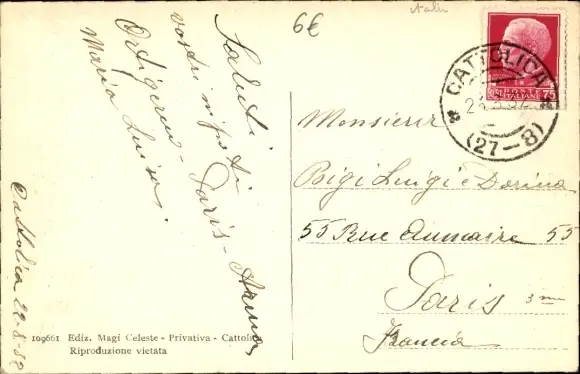 Italien
6€
75
POSTE ITALIANE
CATTOLICA
(27-8)
Saluti
vostri nipoti
Paris - Arena
Maria Luisa.
Cattolica 22-8-
Monsieur
Bigi Luigi e Dorina
55 Rue Aumaire 55
Paris 3me
Francia
109661 Ediz. Magi Celeste - Privativa - Cattolica
Riproduzione vietata